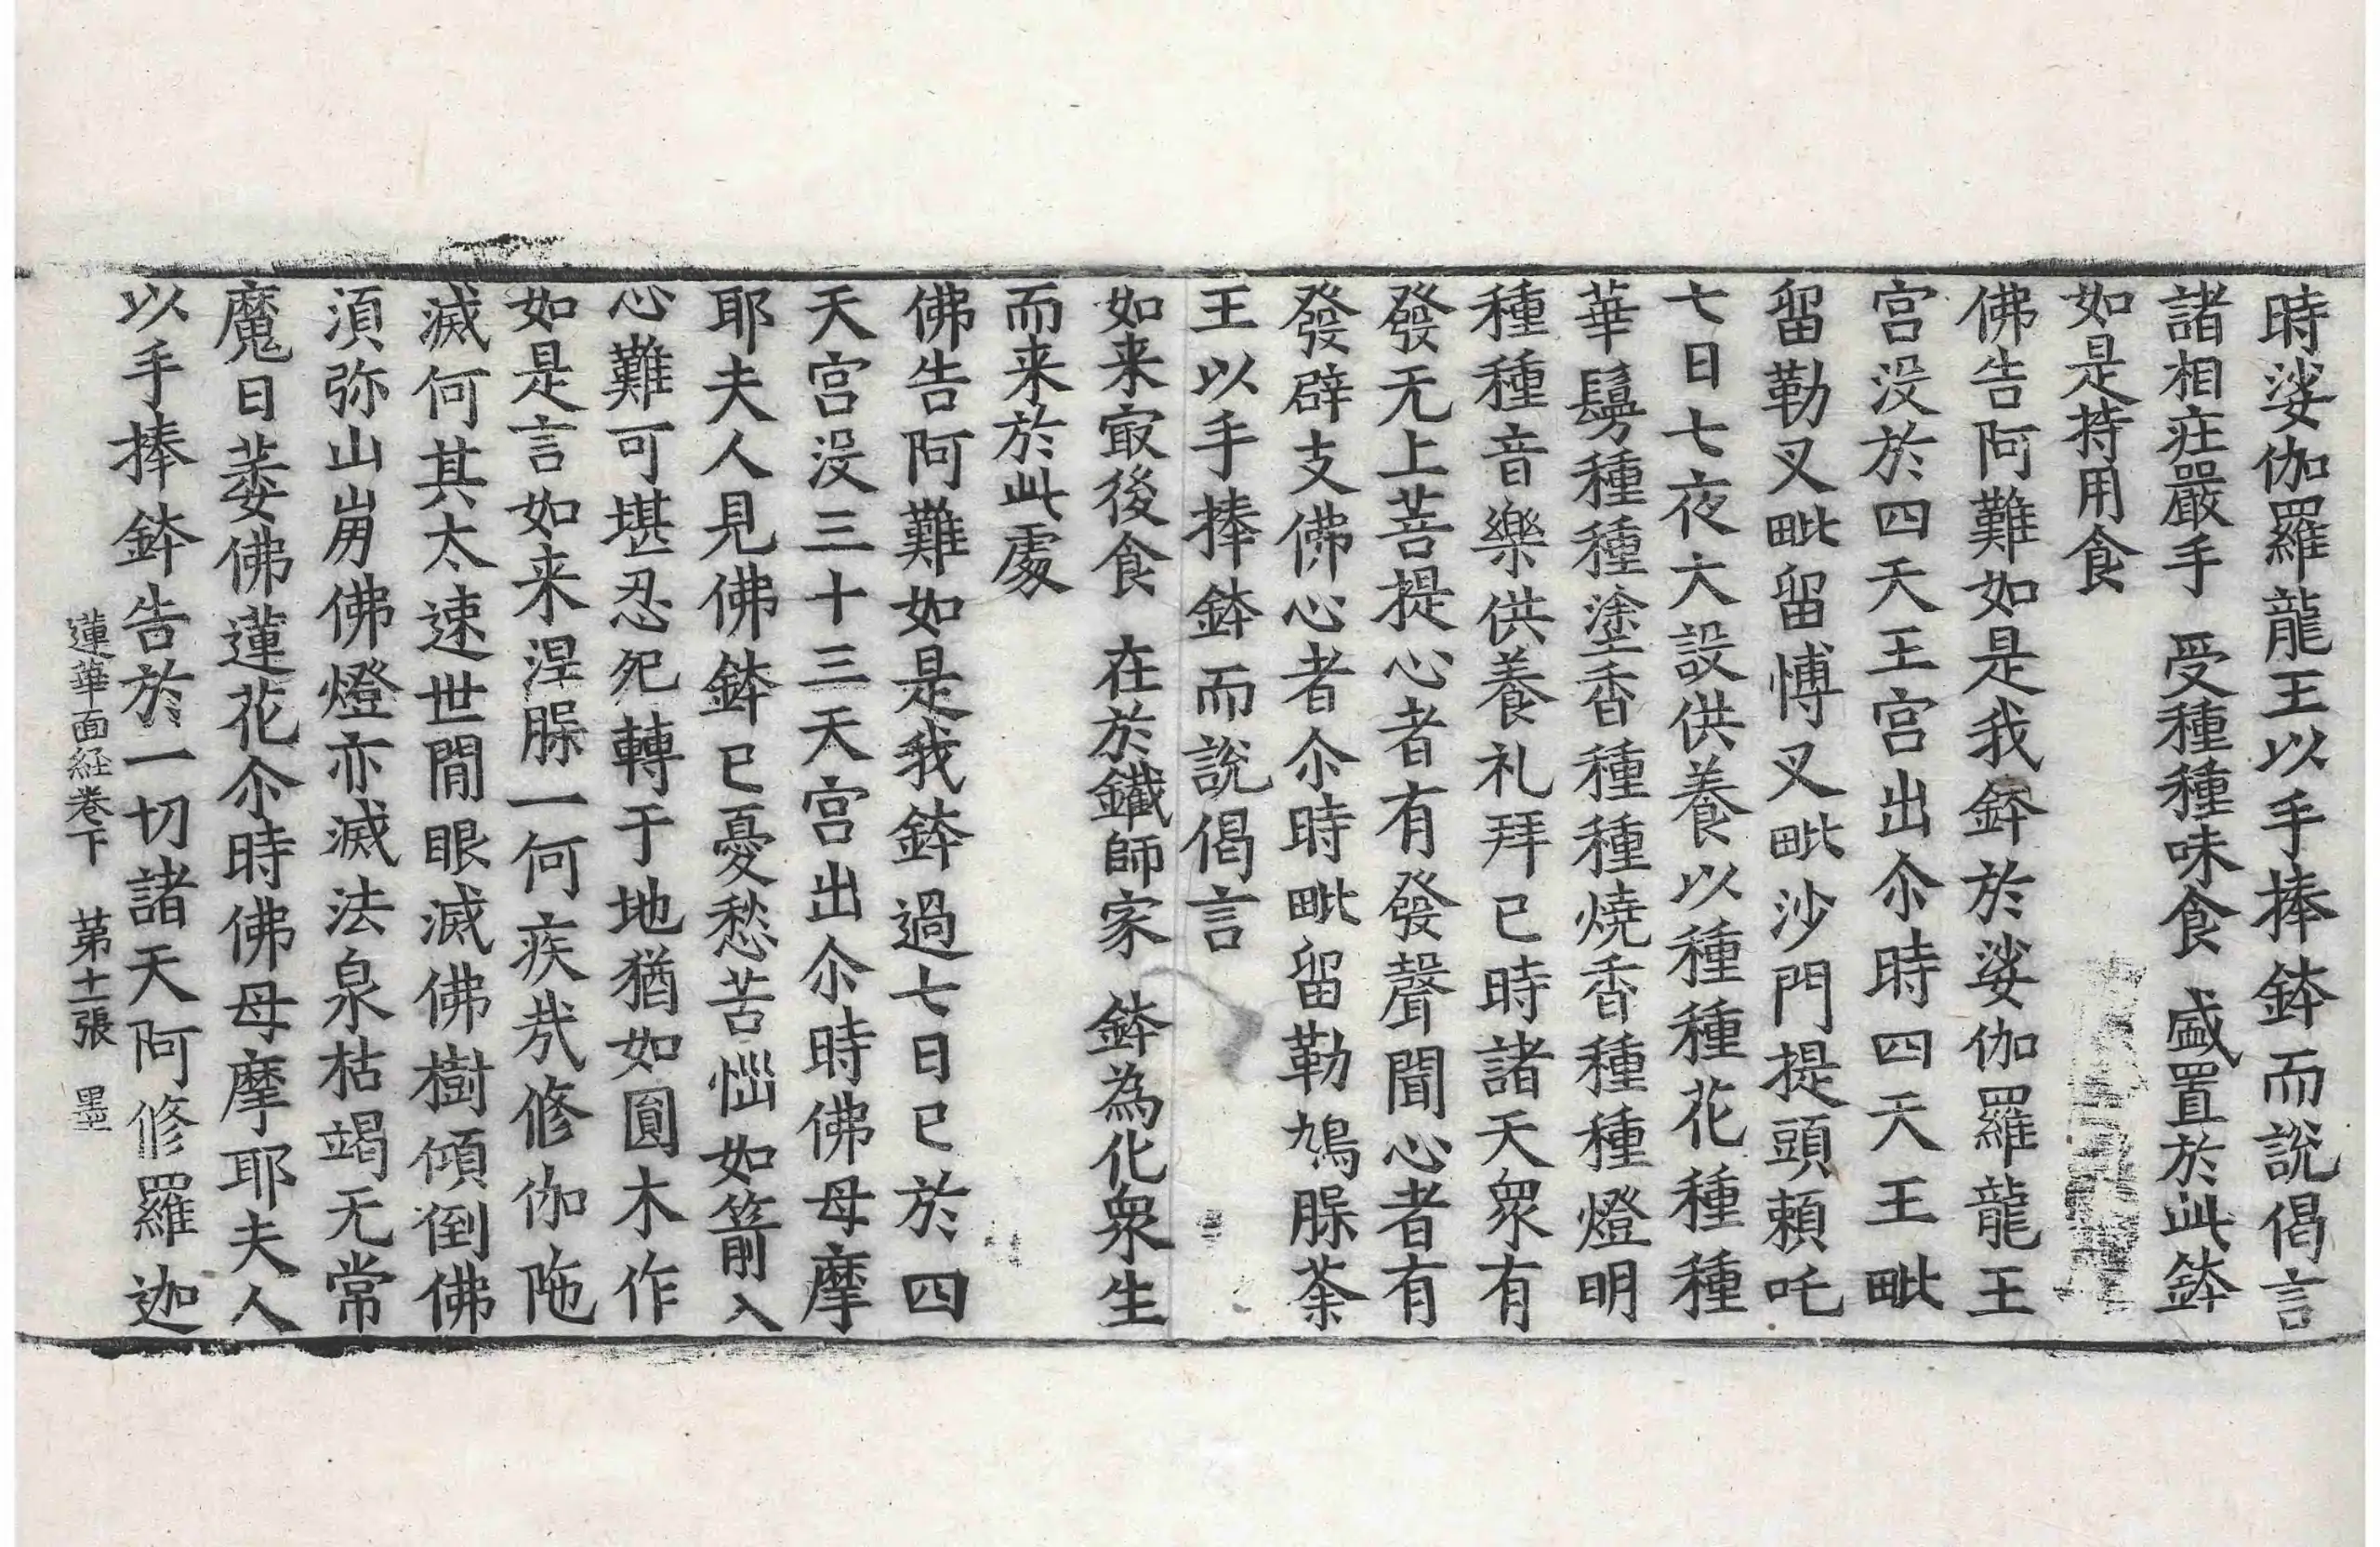 時娑伽羅龍王以手捧鉢而說偈言
諸相莊嚴手　受種種味食　盛置於此鉢
如是持用食
佛告阿難如是我鉢於娑伽羅龍王
宮没於四天王宮出尒時四天王毗
留勒叉毗留愽叉毗沙門提頭頼吒
七日七夜大設供養以種種花種種
華鬘種種塗香種種燒香種種燈明
種種音樂供養礼拜已時諸天衆有
發无上菩提心者有發聲聞心者有
發辟支佛心者尒時毗留勒鳩腺荼
王以手捧鉢而說偈言
如来㝡後食　在於鐵師家　鉢為化衆生
而来於此處
佛告阿難如是我鉢過七日已於四
天宮没三十三天宮出尒時佛母摩
耶夫人見佛鉢已憂愁苦惱如箭入
心難可堪忍死轉于地猶如圓木作
如是言如来涅腺一何疾㢤修伽陁
滅何其太速世閒眼滅佛樹傾倒佛
湏弥山崩佛燈亦滅法泉枯竭无常
魔日萎佛蓮花尒時佛母摩耶夫人
以手捧鉢告於一切諸天阿修羅迦
蓮華面経卷下　苐十一張　墨